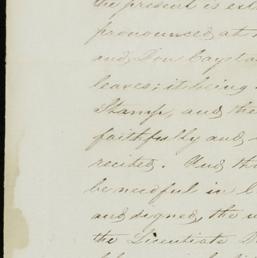 the present is ex
pronounced at
and Don Cayeta
leaves; it being
Stamp, and the
faithfully and
recited. And th
be needful in
and signed, the
the Licentiate